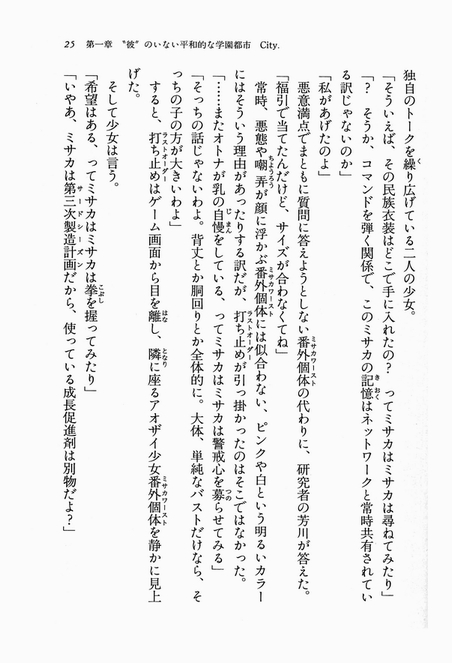 25　第一章　〝彼〟のいない平和的な学園都市　City.
独自のトークを繰り広げている二人の少女。
「そういえば、その民族衣装はどこで手に入れたの？　ってミサカはミサカは尋ねてみたり」
「？　そうか、コマンドを弾く関係で、このミサカの記憶はネットワークと常時共有されてい
る訳じゃないのか」
「私があげたのよ」
悪意満点でまともに質問に答えようとしない番外個体の代わりに、研究者の芳川が答えた。
「福引で当てたんだけど、サイズが合わなくてね」
常時、悪態や嘲弄が顔に浮かぶ番外個体には似合わない、ピンクや白という明るいカラー
にはそういう理由があったりする訳だが、打ち止めが引っ掛かったのはそこではなかった。
「……またオトナが乳の自慢をしている、ってミサカはミサカは警戒心を募らせてみる」
「そっちの話じゃないわよ。背丈とか胴回りとか全体的に。大体、単純なバストだけなら、そ
っちの子の方が大きいわよ」
すると、打ち止めはゲーム画面から目を離し、隣に座るアオザイ少女番外個体を静かに見上
げた。
そして少女は言う。
「希望はある、ってミサカはミサカは拳を握ってみたり」
「いやあ、ミサカは第三次製造計画だから、使っている成長促進剤は別物だよ？」